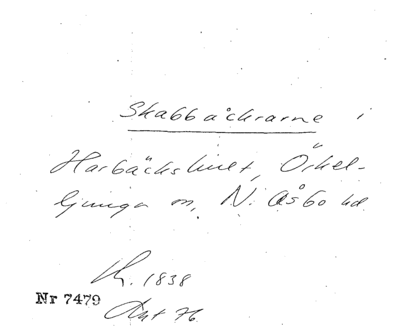 Skabbåckrarne i
Harbäckshult, Örkel-
ljunga sn, N. Åsbo hd
Kh. 1838
Nr 7479
Avt 76